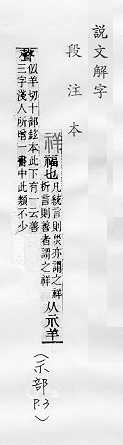 說文解字
段注本
祥福也凡統言則災亦謂之祥析言則善者謂之祥从示羊
聲似羊切十部鉉本此下有一云善三字淺人所增一書中此類不少
(示部P.3)